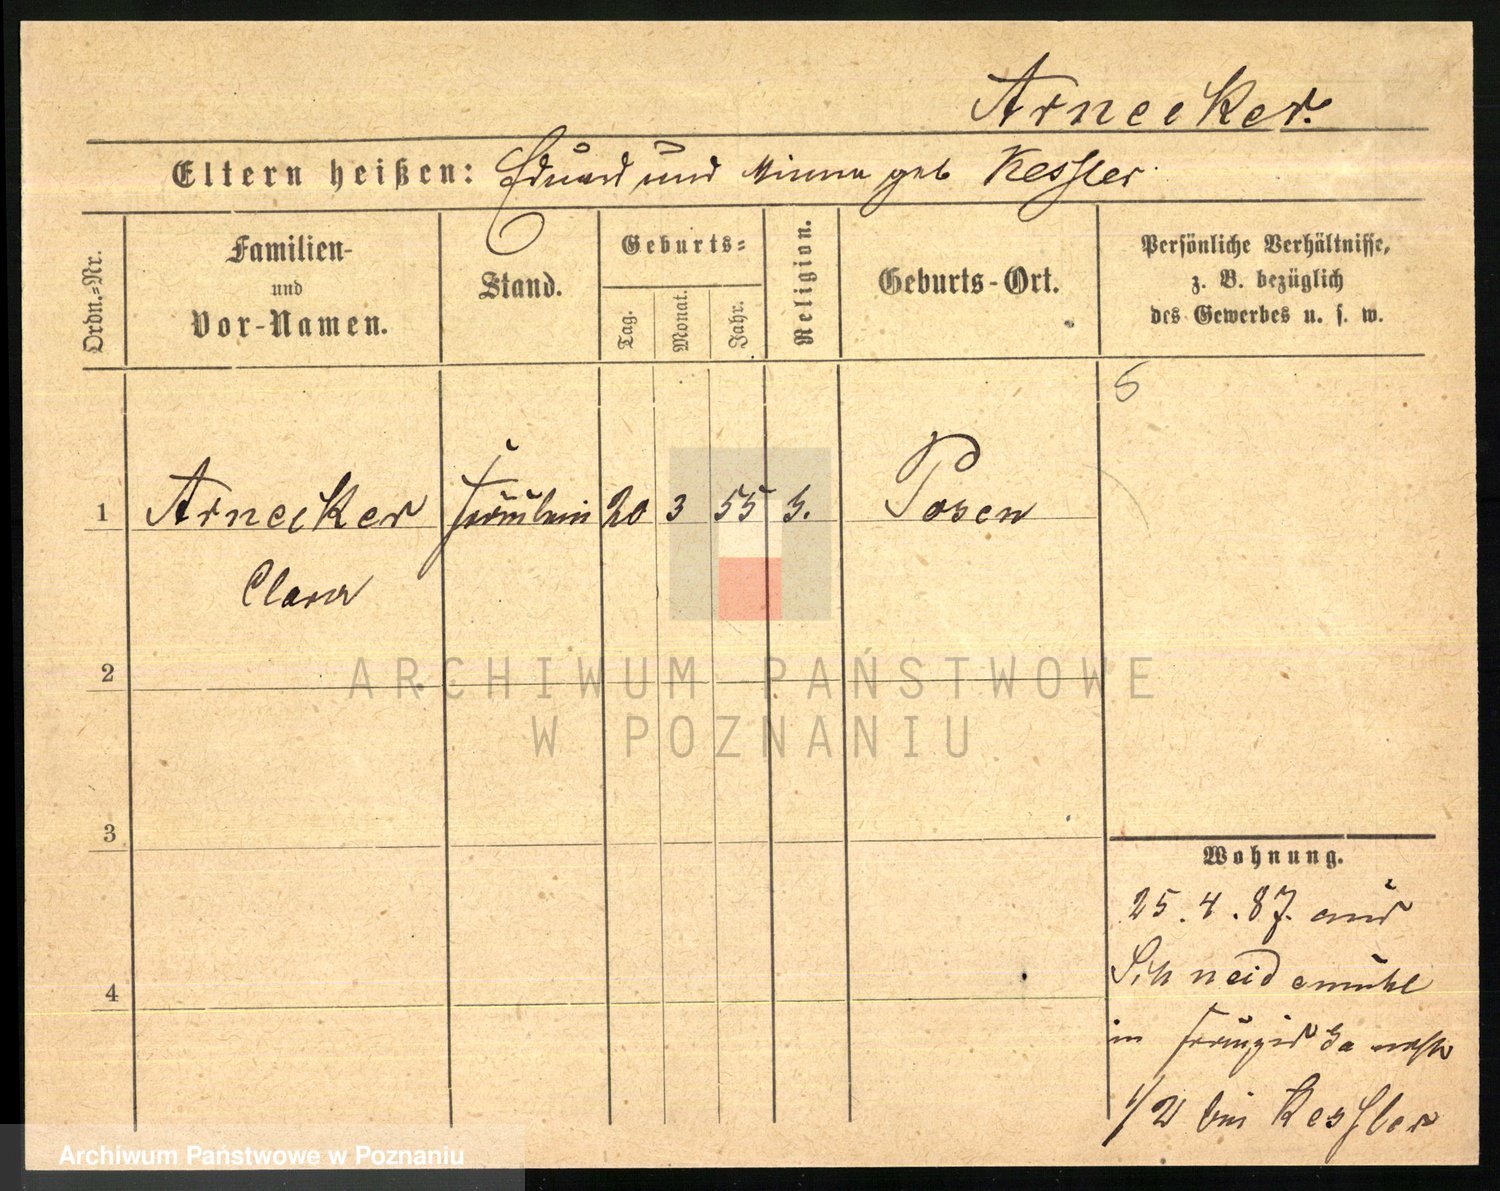 Arnecker.
Eltern heißen: Eduard und Minna geb Kessler
Ordn.-Nr.
Familien-
und
Vor-Namen.
Stand.
Geburts-
Tag.
Monat.
Jahr.
Religion.
Geburts-Ort.
Persönliche Verhältnisse,
z. B. bezüglich
des Gewerbes u. s. w.
1 Arnecker Fräulein 20 3 55 Posen
Clara
2
ARCHIWUM PAŃSTWOWE
W POZNANIU
3
Wohnung.
25.4.87. aus
Schneidemühl
4
in
1/2 bei Kessler
Archiwum Państwowe w Poznaniu